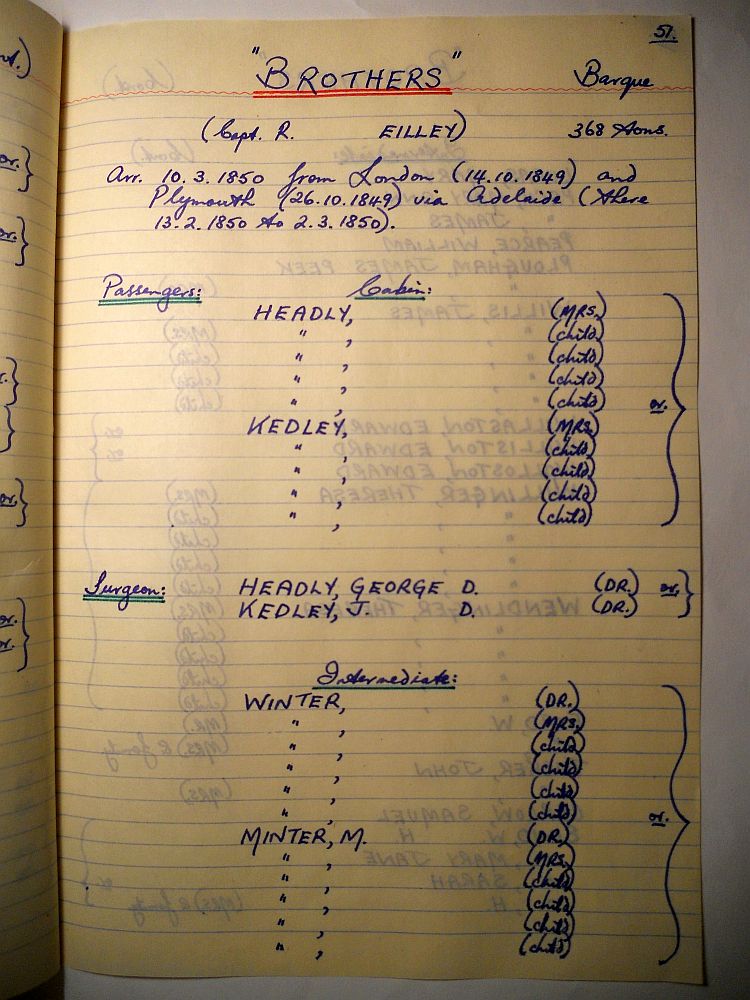 51.
"BROTHERS" Barque
(Capt. R. EILLEY) 368 tons.
Arr. 10.3.1850 from London (14.10.1849) and
Plymouth (26.10.1849) via Adelaide (there
13.2.1850 to 2.3.1850).
Passengers: Cabin:
HEADLY, (MRS.)
" , (child)
" , (child)
" , (child)
" , (child)
or.
KEDLEY, (MRS.)
" , (child)
" , (child)
" , (child)
" , (child)
Surgeon: HEADLY, GEORGE D. (DR.) or.
KEDLEY, J. D. (DR.)
Intermediate:
WINTER, (DR.)
" , (MRS.)
" , (child)
" , (child)
" , (child)
" , (child)
or.
MINTER, M. (DR.)
" , (MRS.)
" , (child)
" , (child)
" , (child)
" , (child)